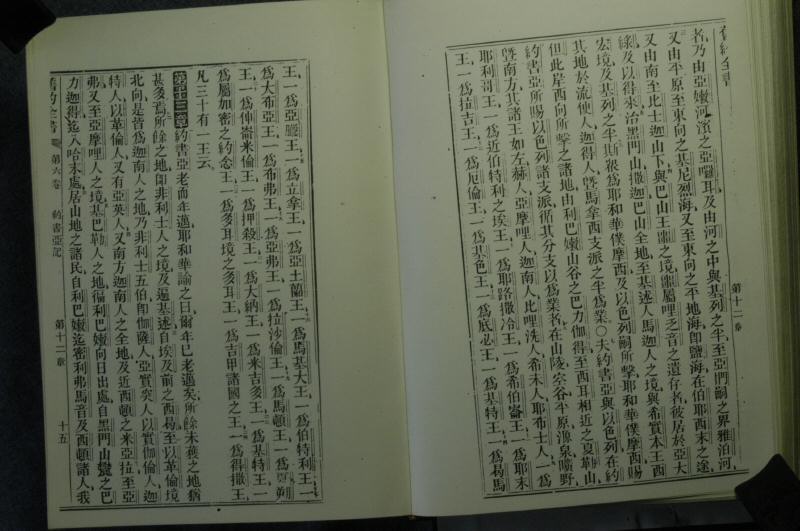 舊約全書
第十二章
者乃由亞嫩河濱之亞囉耳及由河之中與基列之半至亞捫嗣之界雅泊河
又由平原至東向之基尼烈海又至東向之平地海卽鹽海在伯耶西末之途
又由南至比士迦山下與巴山王噩之境噩屬哩乏音之遺存者彼居於亞大
綠及以得來治黑門山撒迦巴山全地至基述人馬迦人之境與希實本王西
宏境及基列之半斯報爲耶和華僕摩西及以色列嗣所擊耶和華僕摩西賜
其地於流便人迦得人曁馬拿西支派之半爲業〇夫約書亞與以色列在約
但此岸西向所擊之諸地由利巴嫩山谷之巴力伽得至西耳相近之夏勒山
約書亞所賜以色列諸支派循其分支以爲業者在山陵宗谷平原源泉曠野
曁南方其諸王如左赫人亞摩哩人迦南人比哩洗人希未人耶布士人一爲
耶利哥王一爲近伯特利之埃王一爲耶路撒冷王一爲希伯崙王一爲耶末
王一爲拉吉王一爲厄倫王一爲基色王一爲底必王一爲基特王一爲曷馬
王一爲亞臘王一爲立拿王一爲亞土蘭王一爲馬基大王一爲伯特利王一
爲大布亞王一爲希弗王一爲亞弗王一爲拉沙倫王一爲馬頓王一爲夏朔
王一爲伸崙米倫王一爲押殺王一爲大納王一爲米吉多王一爲基特王一
爲屬加密之約念王一爲多耳境之多耳王一爲吉甲諸國之王一爲得撒王
凡三十有一王云
第十三章約書亞老而年邁耶和華諭之曰爾年已老邁矣所餘未獲之地猶
甚多焉所餘之地卽非利士人之境及遍基述自埃及前之西曷至以革倫境
北向是皆爲迦南人之地乃非利士五伯卽伽薩人亞實突人以實伽倫人迦
特人以革倫人又有亞英人又南方迦南人之全地及近西頓之米亞拉至亞
弗又至亞摩哩人之境基巴勒人之地徧利巴嫩向日出處自黑門山麓之巴
力迦得迄入哈末處居山地之諸民自利巴嫩迄密利弗馬音及西頓諸人我
舊約全書
第六卷
約書亞記
第十二章
十五